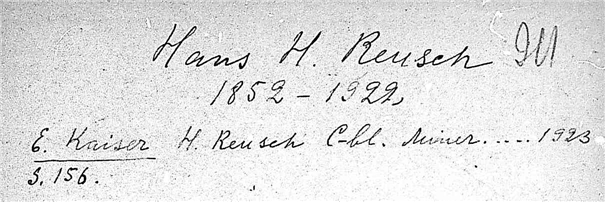 Hans H. Reusch
1852 - 1922
E. Kaiser H. Reusch C-bl. Miner..... 1923
S. 156.